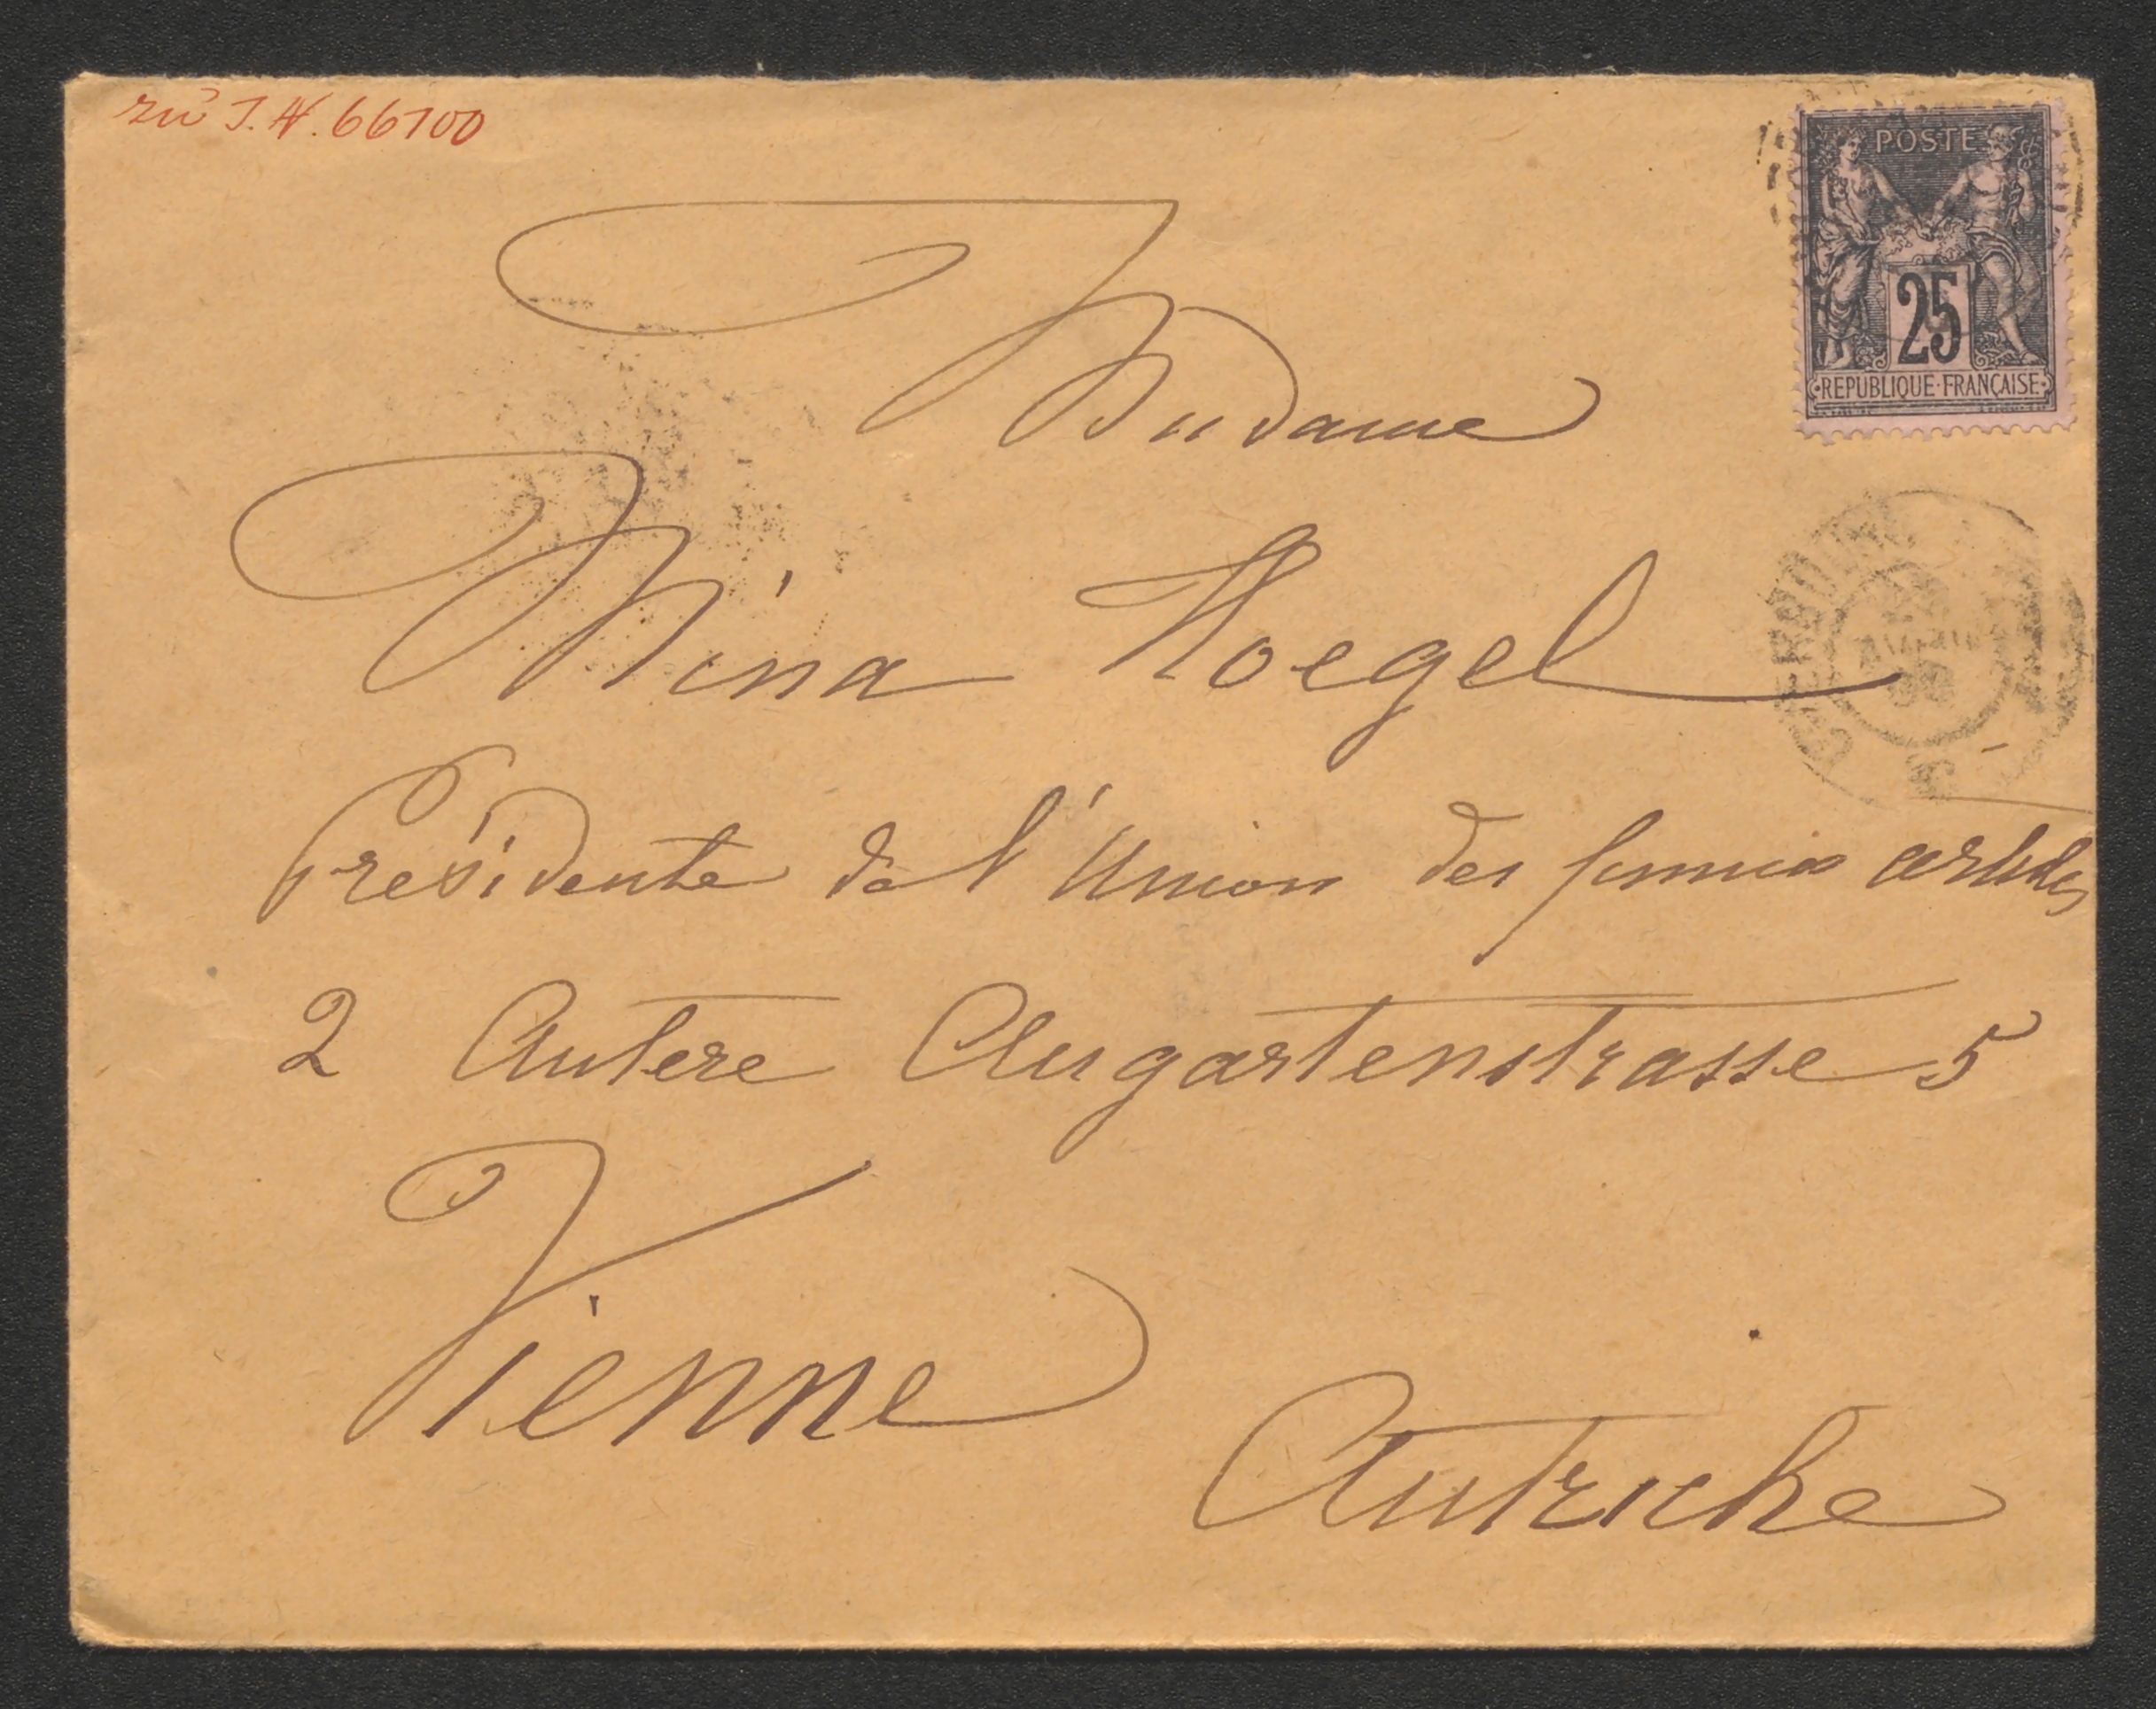 zu I.N. 66700
POSTES
25
REPUBLIQUE FRANÇAISE
Madame
Mina Hoegel
Présidente de l'Union des femmes artistes
2 Autere Augartenstrasse 5
Vienne
Autriche
CHERBOURG